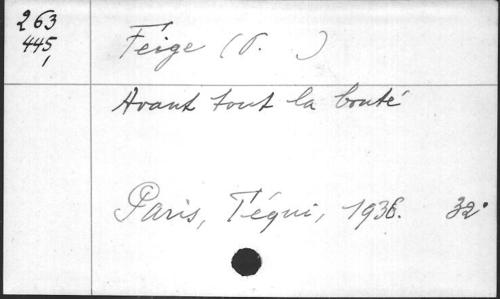 263
445,
Féige (P. )
Avant tout la bonté
Paris, Téqui, 1936. 32°